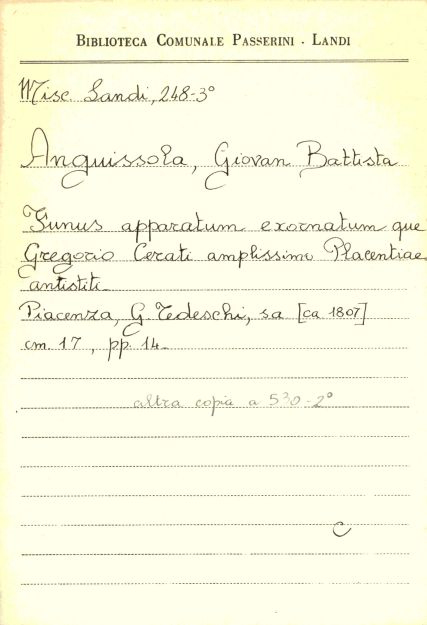 BIBLIOTECA COMUNALE PASSERINI - LANDI
Misc. Landi, 248-3°
Anguissola, Giovan Battista
Funus apparatum exornatum que
Gregorio Cerati amplissimo Placentiae
antistiti.
Piacenza, G. Tedeschi, sa [ca 1807]
cm. 17, pp. 14.
altra copia a 530-2°
C